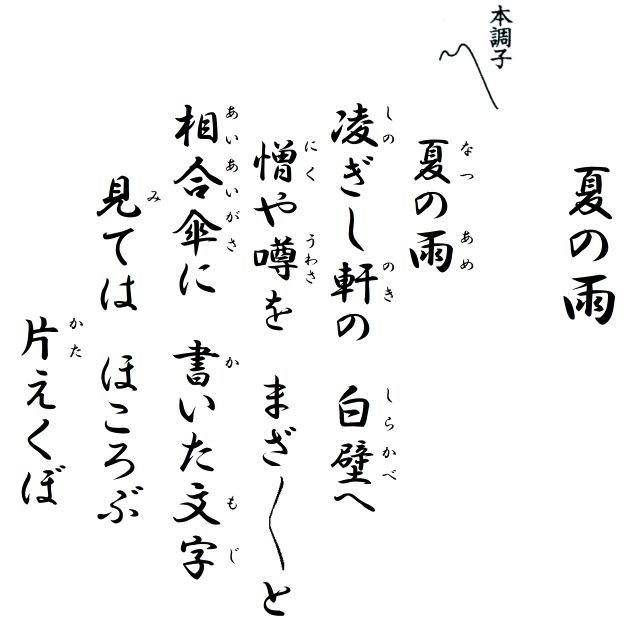 夏の雨
本調子
〽
夏の雨
凌ぎし軒の　白壁へ
憎や噂を　まざ〳〵と
相合傘に　書いた文字
見ては　ほころぶ
片えくぼ